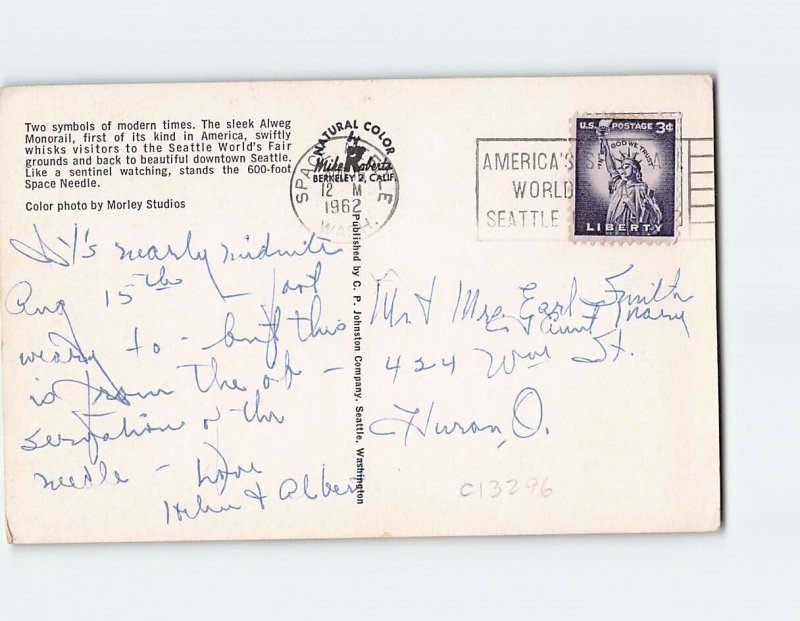 Two symbols of modern times. The sleek Alweg
Monorail, first of its kind in America, swiftly
whisks visitors to the Seattle World's Fair
grounds and back to beautiful downtown Seattle.
Like a sentinel watching, stands the 600-foot
Space Needle.
Color photo by Morley Studios
NATURAL COLOR
by
Mike Roberts
BERKELEY 2, CALIF.
12 M
1962
WASH.
AMERICA'S SPA
WORLD
SEATTLE
U.S. POSTAGE 3¢
IN GOD WE TRUST
LIBERTY
It's nearly midnite
Aug 15th - foot
weary to - but this
is from the ob -
servation of the
needle - Love
Helen & Albert
Published by C. P. Johnston Company, Seattle, Washington
Mr & Mrs Earl Smith
& Aunt Mary
424 Wm St.
Huron, O.
C13296